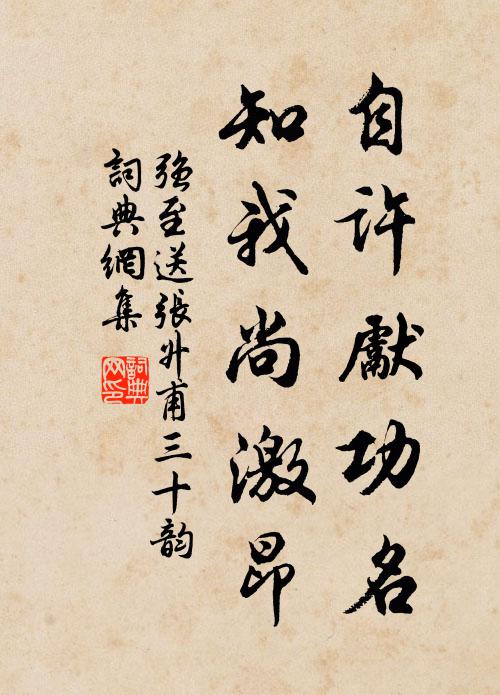 自許獻功名
知我尚激昂
強至送張升甫三十韵
詞典網集
詞典
网印